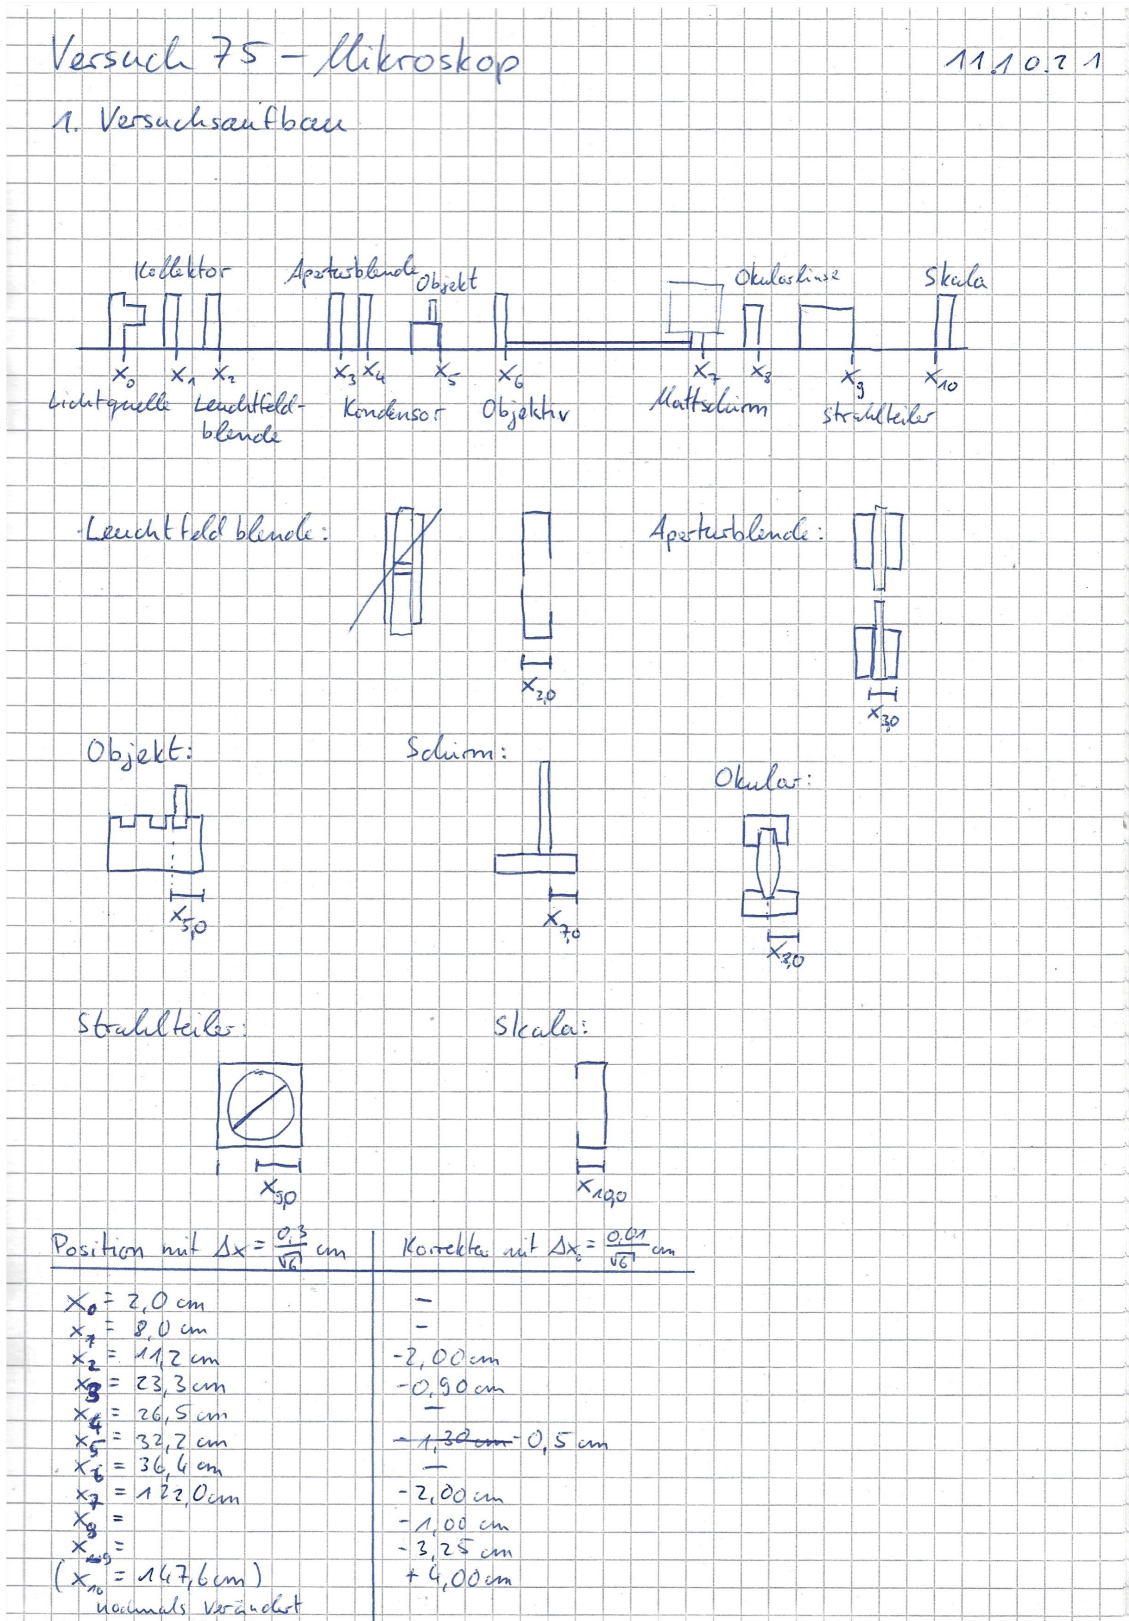 Versuch 75 – Mikroskop 11.10.21
1. Versuchsaufbau
Kollektor Aperturblende Objekt Okularlinse Skala
x₀ x₁ x₂ x₃ x₄ x₅ x₆ x₇ x₈ x₉ x₁₀
Lichtquelle Leuchtfeld- Kondensor Objektiv Mattschirm Strahlteiler
blende
Leuchtfeldblende: Aperturblende:
x₂,₀ x₃,₀
Objekt: Schirm: Okular:
x₅,₀ x₇,₀ x₈,₀
Strahlteiler: Skala:
x₉,₀ x₁₀,₀
Position mit Δx = 0,3/√6 cm Korrektur mit Δx₀ = 0,01/√6 cm
x₀ = 2,0 cm –
x₁ = 8,0 cm –
x₂ = 11,2 cm -2,00 cm
x₃ = 23,3 cm -0,90 cm
x₄ = 26,5 cm –
x₅ = 32,2 cm -1,30 cm -0,5 cm
x₆ = 36,4 cm –
x₇ = 122,0 cm -2,00 cm
x₈ = -1,00 cm
x₉ = -3,25 cm
(x₁₀ = 147,6 cm) +4,00 cm
nochmals verändert